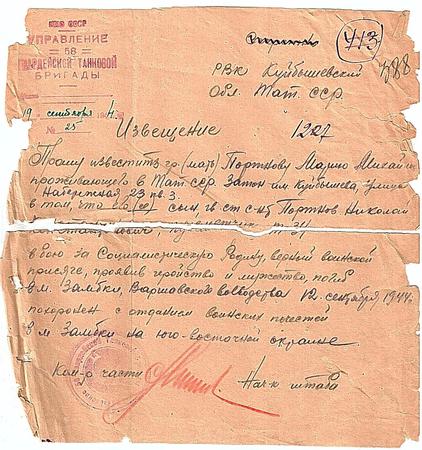 НКО СССР
УПРАВЛЕНИЕ
58
ГВАРДЕЙСКОЙ ТАНКОВОЙ
БРИГАДЫ
19 сентября 194
№ 25
413
388
РВК Куйбышевский
Обл. Тат. ССР.
Извещение
1227
Прошу известить гр. (мать) Портнову Марию Михайл
проживающего в Тат. ССР. Затон им. Куйбышева, улица
Набережная 23 кв. 3.
в том, что её (ее) сын гв. ст. с-нт Портнов Николай
Т-34
в бою за Социалистическую Родину, верный воинской
присяге, проявив геройство и мужество, погиб
в м. Замбки, Варшавского воеводства 12 сентября 1944.
похоронен с отданием воинских почестей
в м. Замбки на юго-восточной окраине.
Ком-р части
Нач-к штаба